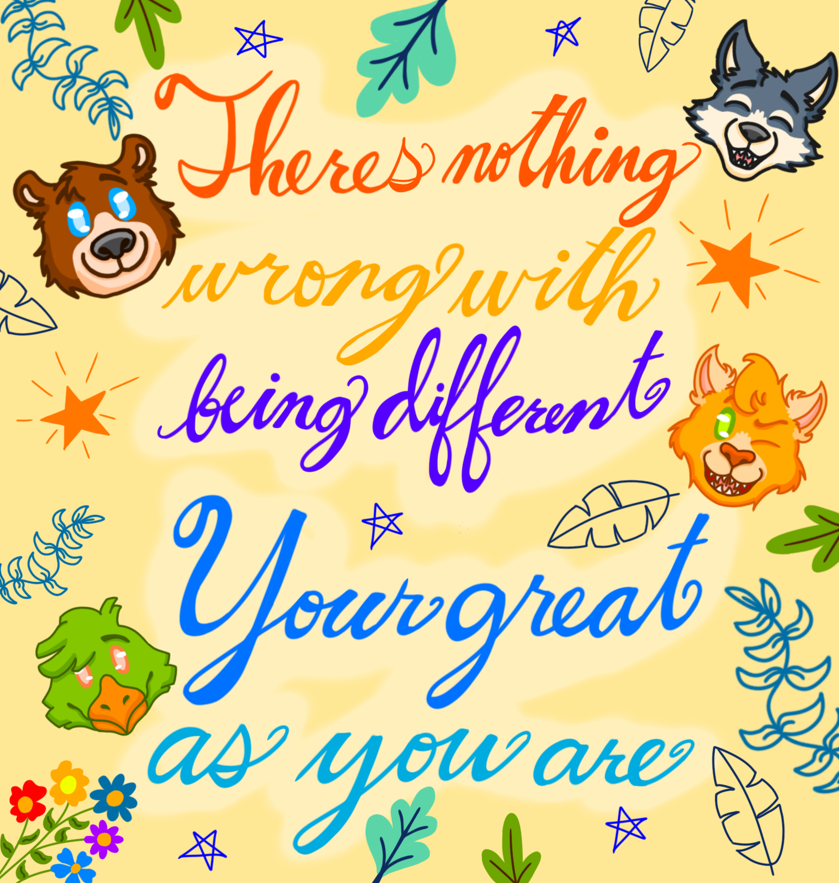 Theres nothing
wrong with
being different
Your great
as you are